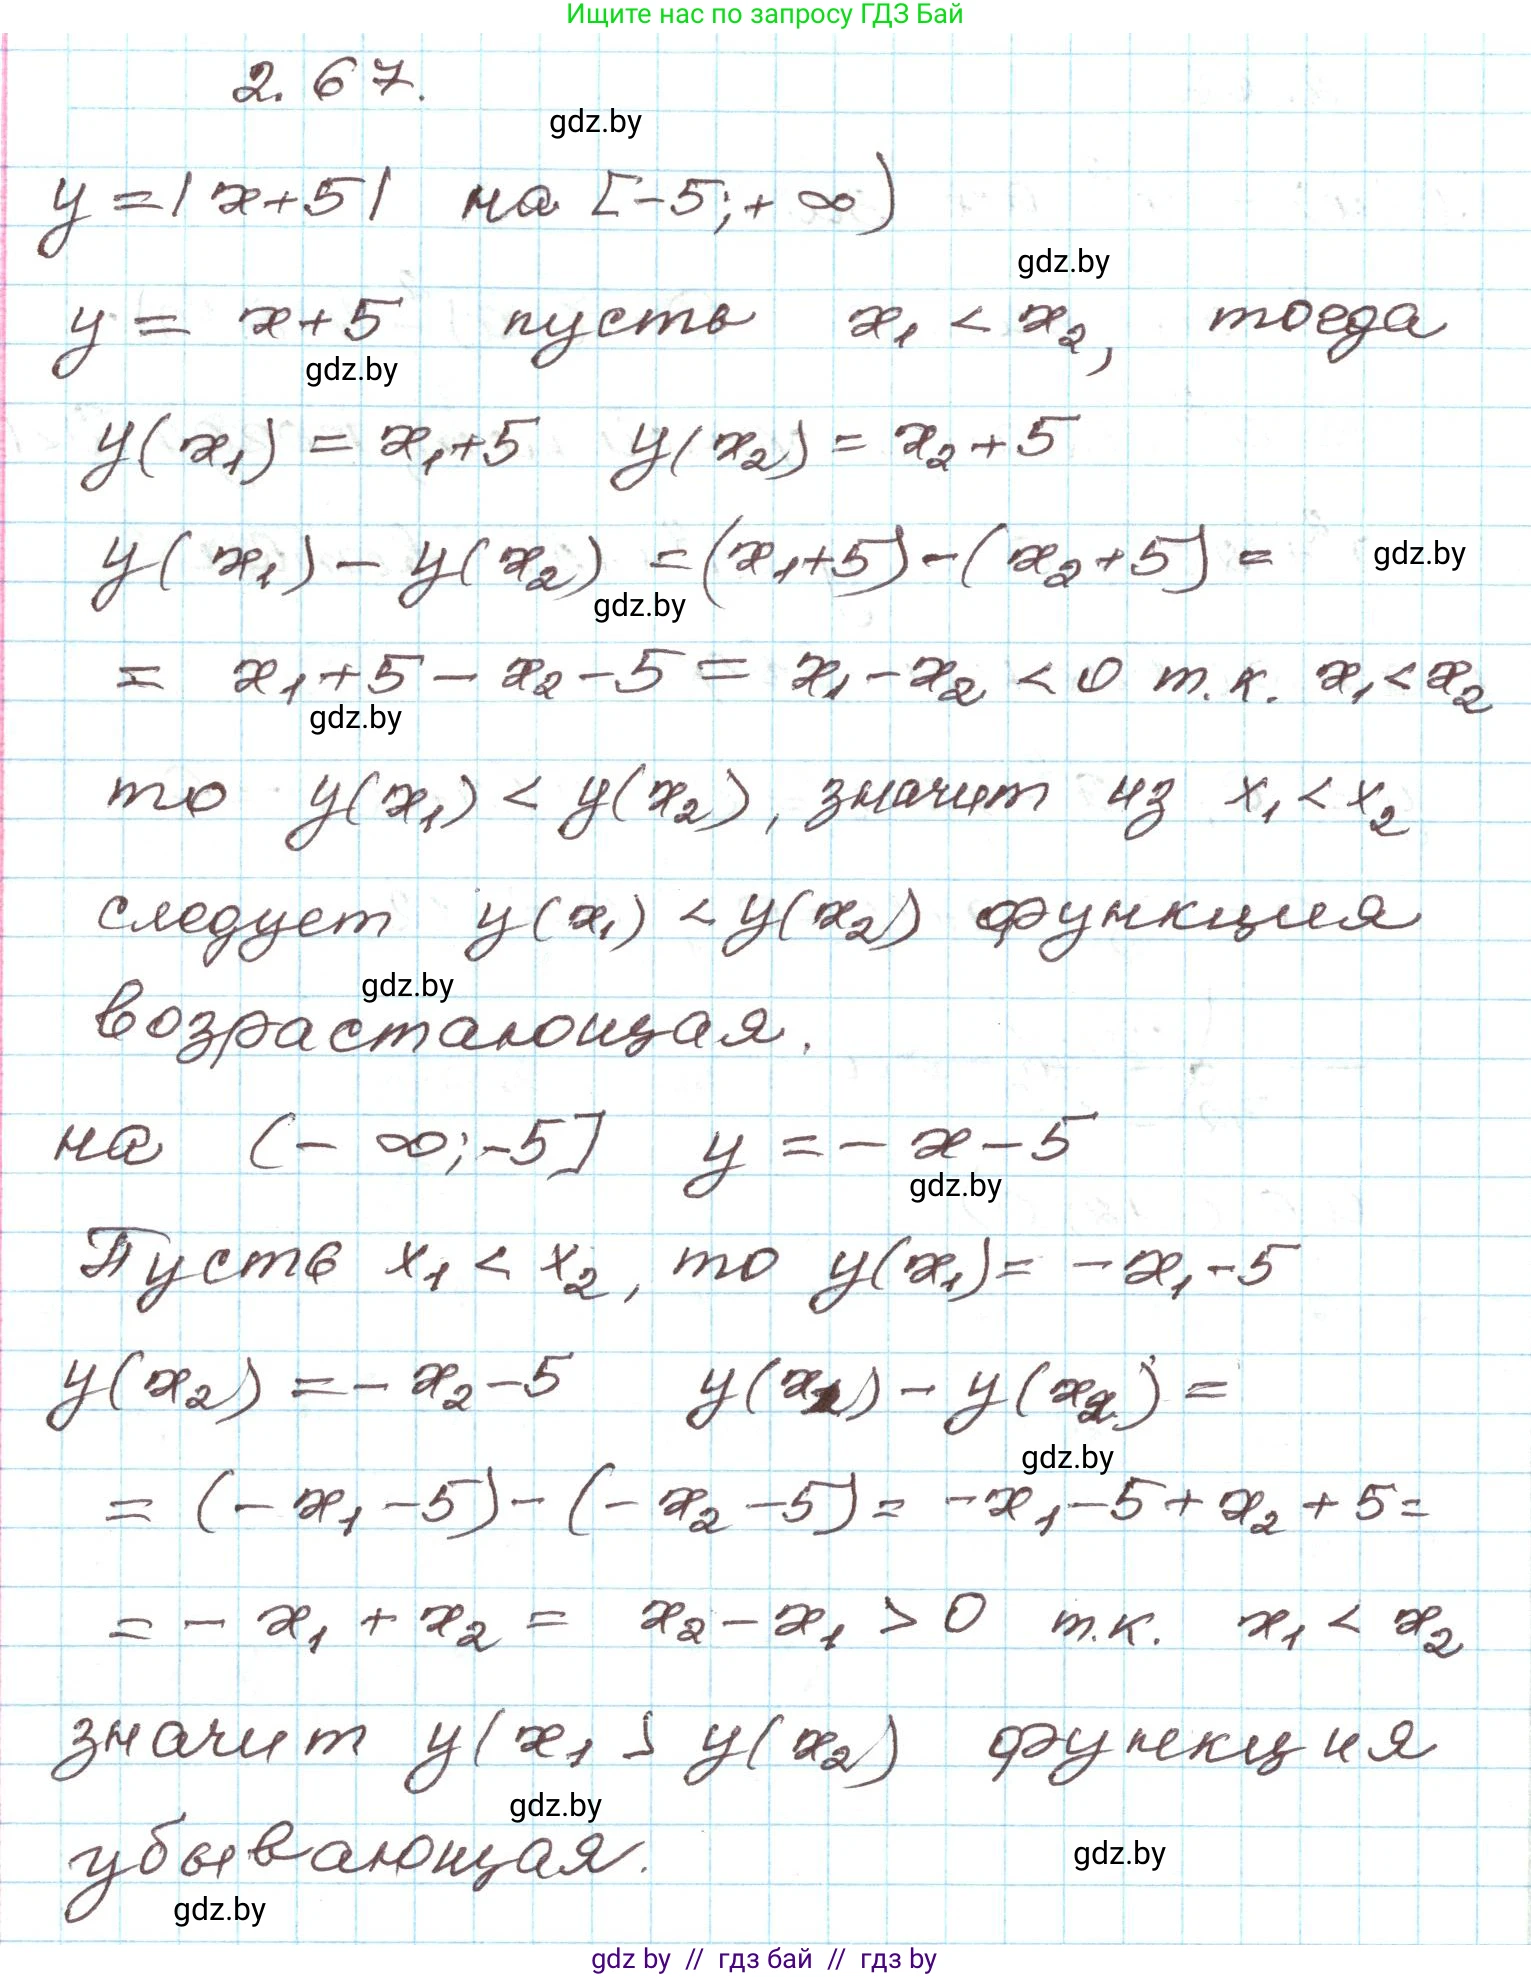 Ищите нас по запросу ГДЗ Бай
2.67.
gdz.by
y=|x+5| на [-5;+∞)
gdz.by
y = x+5 пусть x₁ < x₂, тогда
gdz.by
y(x₁) = x₁+5 y(x₂) = x₂+5
y(x₁) - y(x₂) = (x₁+5) - (x₂+5) =
gdz.by
gdz.by
= x₁+5-x₂-5 = x₁-x₂ < 0 т.к. x₁<x₂
gdz.by
то y(x₁) < y(x₂), значит из x₁<x₂
следует y(x₁) < y(x₂) функция
gdz.by
возрастающая.
на (-∞;-5] y = -x-5
gdz.by
Пусть x₁ < x₂, то y(x₁) = -x₁-5
y(x₂) = -x₂-5 y(x₁) - y(x₂) =
gdz.by
= (-x₁-5) - (-x₂-5) = -x₁-5+x₂+5 =
= -x₁+x₂ = x₂-x₁ > 0 т.к. x₁ < x₂
значит y(x₁ > y(x₂) функция
gdz.by
убывающая.
gdz.by
gdz.by
gdz by // гдз бай // гдз by